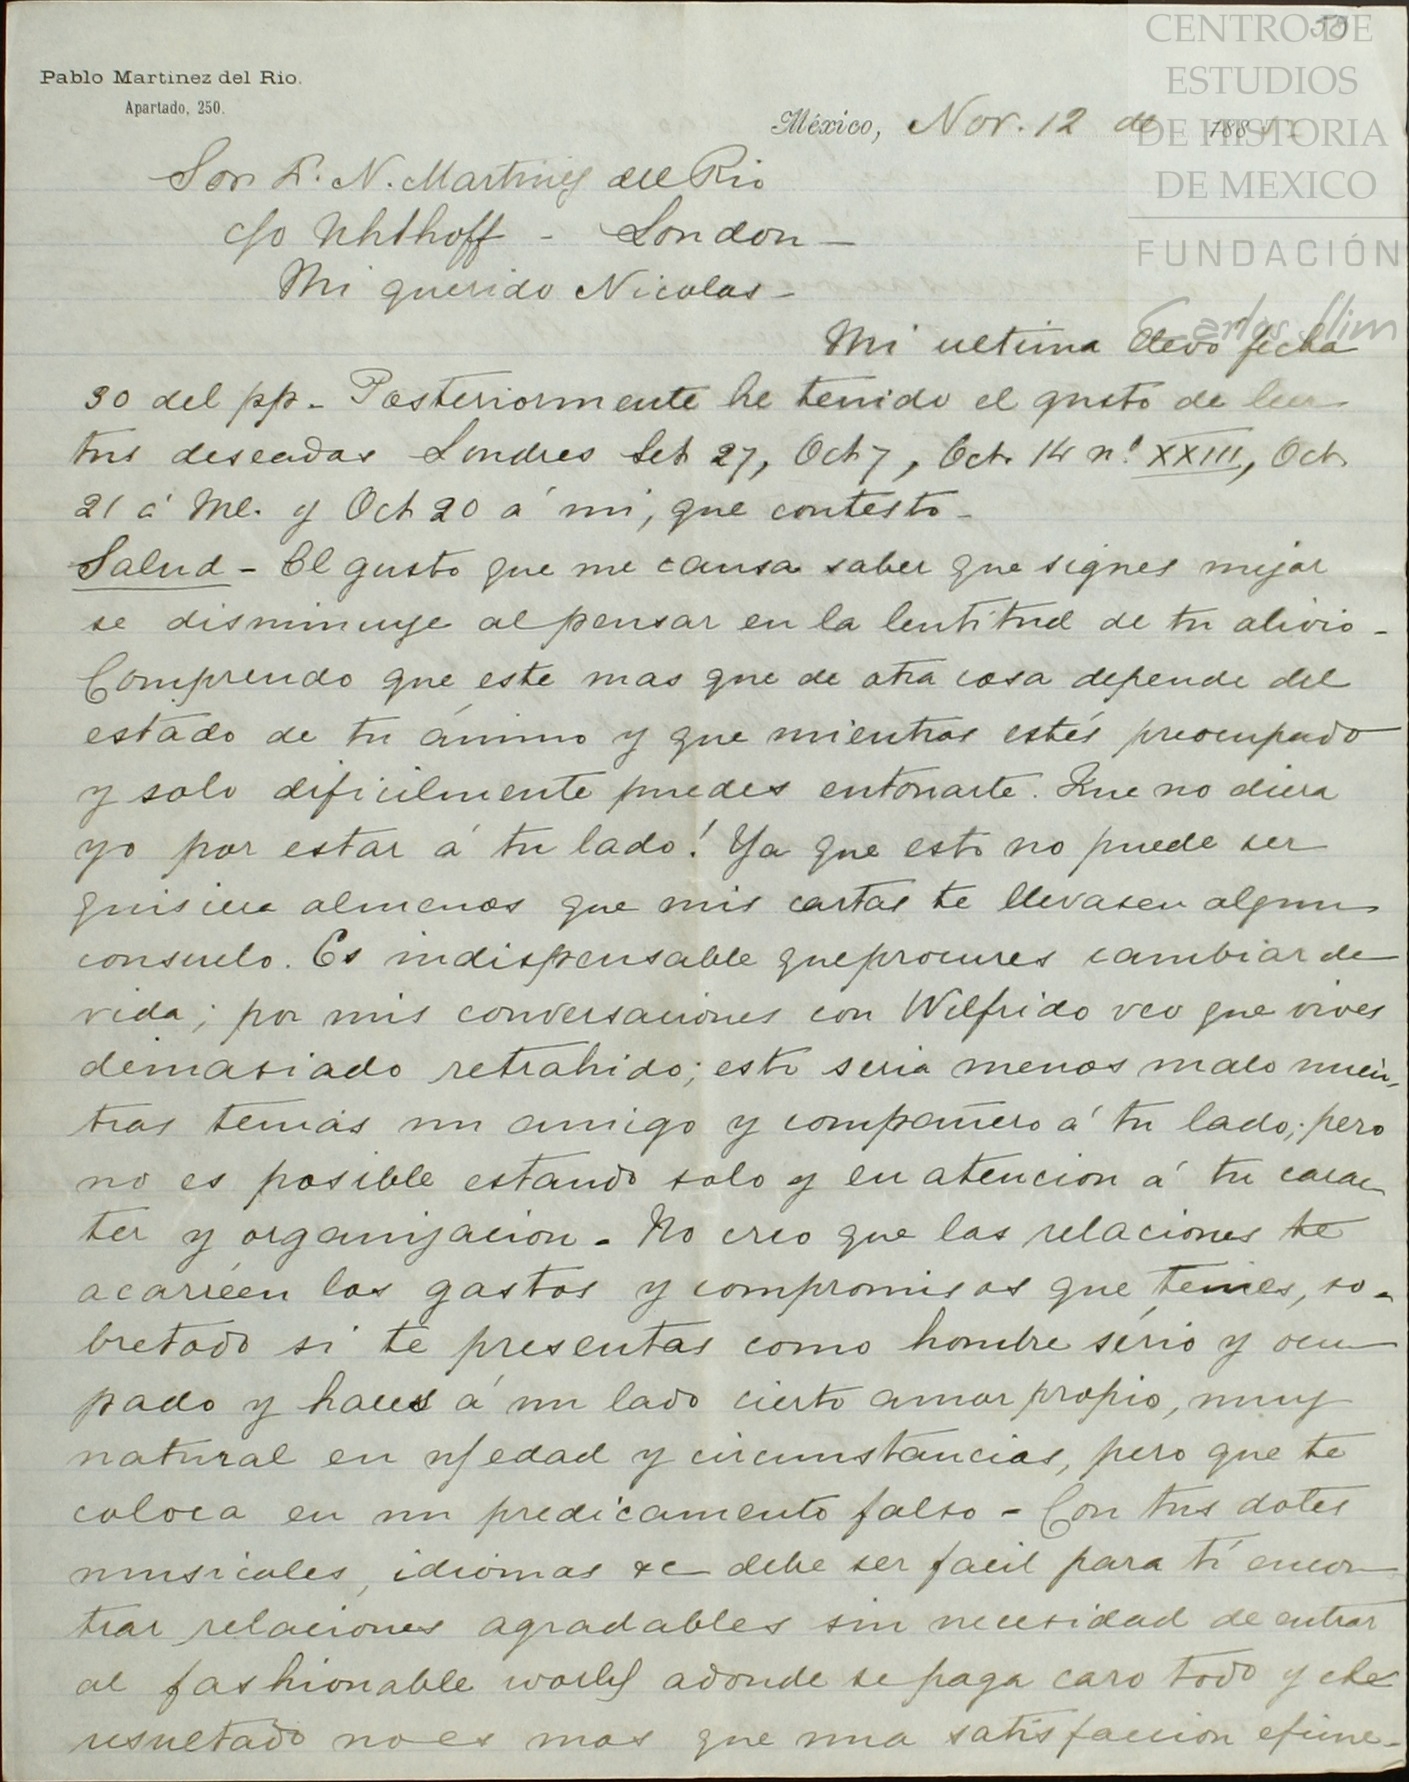 CENTRO DE
ESTUDIOS
DE HISTORIA
DE MEXICO
FUNDACIÓN
Carlos Slim
Pablo Martinez del Rio.
Apartado, 250.
México, Nov. 12 de 188
Sor D. N. Martinez del Rio
c/o Uhthoff - London -
Mi querido Nicolas -
Mi ultima llevo fecha
30 del pp. - Posteriormente he tenido el gusto de leer
tus deseadas Londres Set 27, Oct 7, Oct. 14 nº XXIII, Oct
21 á Ml. y Oct 20 á mi, que contesto -
Salud - El gusto que me causa saber que sigues mejor
se disminuye al pensar en la lentitud de tu alivio -
Comprendo que este mas que de otra cosa depende del
estado de tu ánimo y que mientras estés preocupado
y solo dificilmente puedes entonarte. Que no diera
yo por estar á tu lado! Ya que esto no puede ser
quisiera almenos que mis cartas te llevasen algun
consuelo. Es indispensable que procures cambiar de
vida; por mis conversaciones con Wilfrido veo que vives
demasiado retrahido; esto seria menos malo mien-
tras tenias un amigo y compañero á tu lado; pero
no es posible estando solo y en atencion á tu carac
ter y organizacion. - No creo que las relaciones te
acarréen los gastos y compromisos que temes, so-
bretodo si te presentas como hombre sério y ocu
pado y haces á un lado cierto amor propio, muy
natural en tu edad y circunstancias, pero que te
coloca en un predicamento falso - Con tus dotes
musicales, idiomas &c debe ser facil para tí encon
trar relaciones agradables sin necesidad de entrar
al fashionable world adonde se paga caro todo y el
resultado no es mas que una satisfaccion efime-